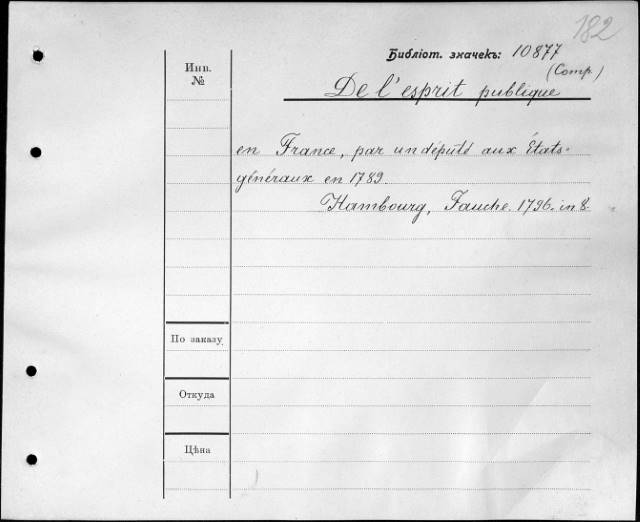 182
Библіот. значекъ: 10877
(Comp.)
Инв.
№
De l'esprit publique
en France, par un député aux États-
généraux en 1789.
Hambourg, Fauche. 1796. in 8.
По заказу
Откуда
Цѣна